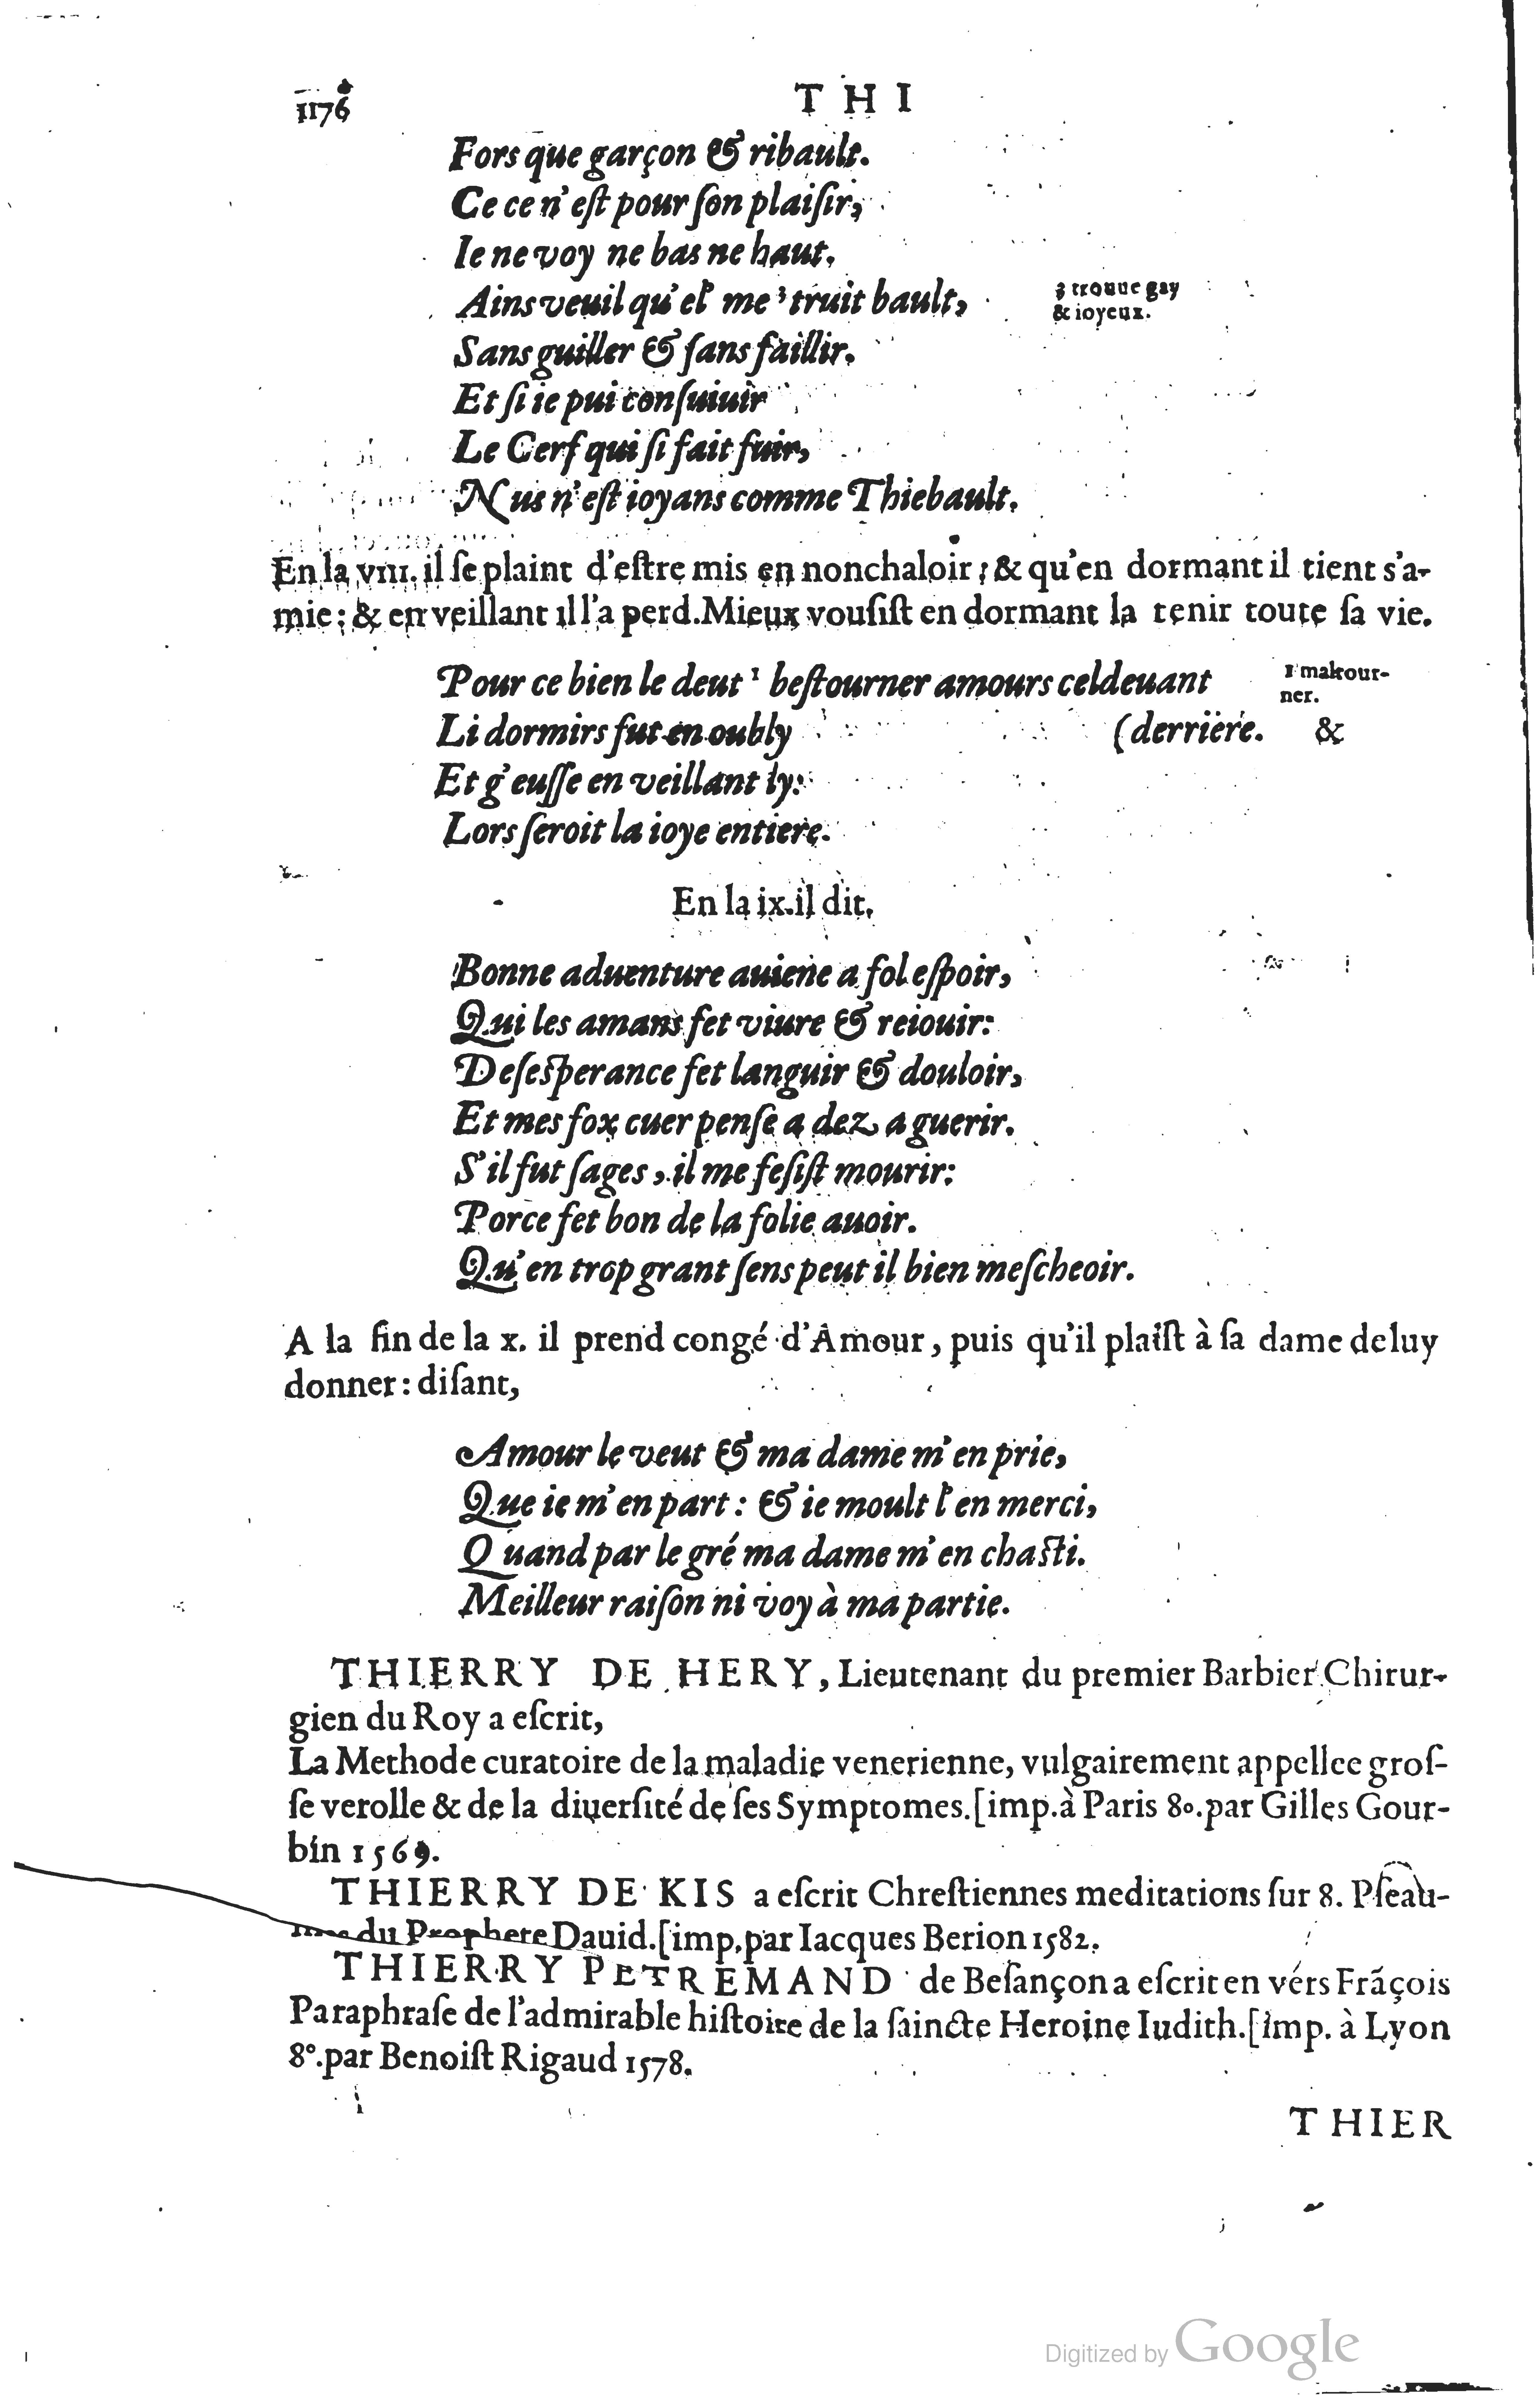 1176
THI
Fors que garçon & ribault.
Ce ce n'eſt pour ſon plaiſir,
Ie ne voy ne bas ne haut.
Ains veuil qu'el' me ³ truit bault,
3 trouue gay
& ioyeux.
Sans guiller & ſans faillir.
Et ſi ie pui conſuiuir
Le Cerf qui ſi fait fuir,
Nus n'eſt ioyans comme Thiebault.
En la VIII. il ſe plaint d'eſtre mis en nonchaloir; & qu'en dormant il tient s'a-
mie; & en veillant il l'a perd. Mieux vouſiſt en dormant la tenir toute ſa vie.
Pour ce bien le deut ¹ beſtourner amours cel deuant
1 maltour-
ner.
Li dormirs fut en oubly
(derriere.
&
Et g'euſſe en veillant ly:
Lors ſeroit la ioye entiere.
En la ix. il dit.
Bonne aduenture auiene a fol eſpoir,
Qui les amans fet viure & reiouir:
Deſeſperance fet languir & douloir,
Et mes fox cuer penſe a dez a guerir.
S'il fut ſages, il me feſiſt mourir:
Porce fet bon de la folie auoir.
Qu'en trop grant ſens peut il bien meſcheoir.
A la fin de la x. il prend congé d'Amour, puis qu'il plaiſt à ſa dame de luy
donner: diſant,
Amour le veut & ma dame m'en prie,
Que ie m'en part: & ie moult l'en merci,
Quand par le gré ma dame m'en chaſti.
Meilleur raiſon ni voy à ma partie.
THIERRY DE HERY, Lieutenant du premier Barbier Chirur-
gien du Roy a eſcrit,
La Methode curatoire de la maladie venerienne, vulgairement appellee groſ-
ſe verolle & de la diuerſité de ſes Symptomes. [imp. à Paris 8o. par Gilles Gour-
bin 1569.
THIERRY DE KIS a eſcrit Chreſtiennes meditations ſur 8. Pſeau-
du Prophete Dauid. [imp. par Iacques Berion 1582.
THIERRY PETREMAND de Beſançon a eſcrit en vers Frãçois
Paraphraſe de l'admirable hiſtoire de la ſaincte Heroine Iudith. [imp. à Lyon
8°. par Benoiſt Rigaud 1578.
THIER
Digitized by Google